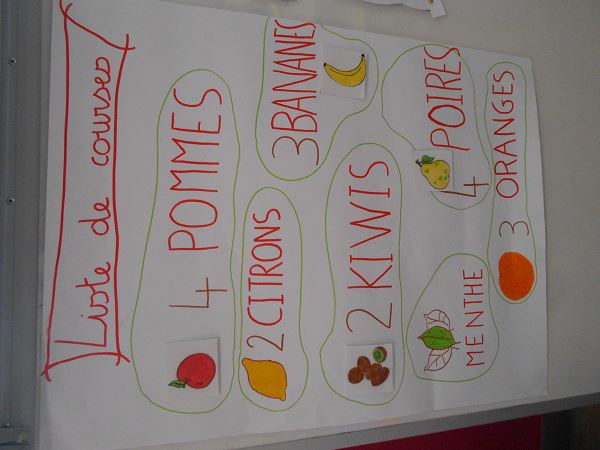 Liste de courses
4 POMMES
2 CITRONS
3 BANANES
2 KIWIS
4 POIRES
MENTHE
3 ORANGES